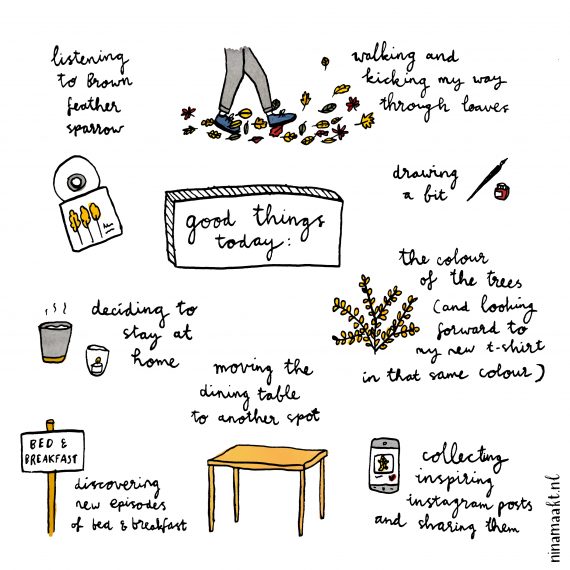 listening
to Brown
feather
sparrow
walking and
kicking my way
through leaves
good things
today:
drawing
a bit
the colour
of the trees
(and looking
forward to
my new t-shirt
in that same colour)
deciding to
stay at
home
moving the
dining table
to another spot
BED &
BREAKFAST
discovering
new episodes
of bed & breakfast
collecting
inspiring
instagram posts
and sharing them
ninamaakt.nl